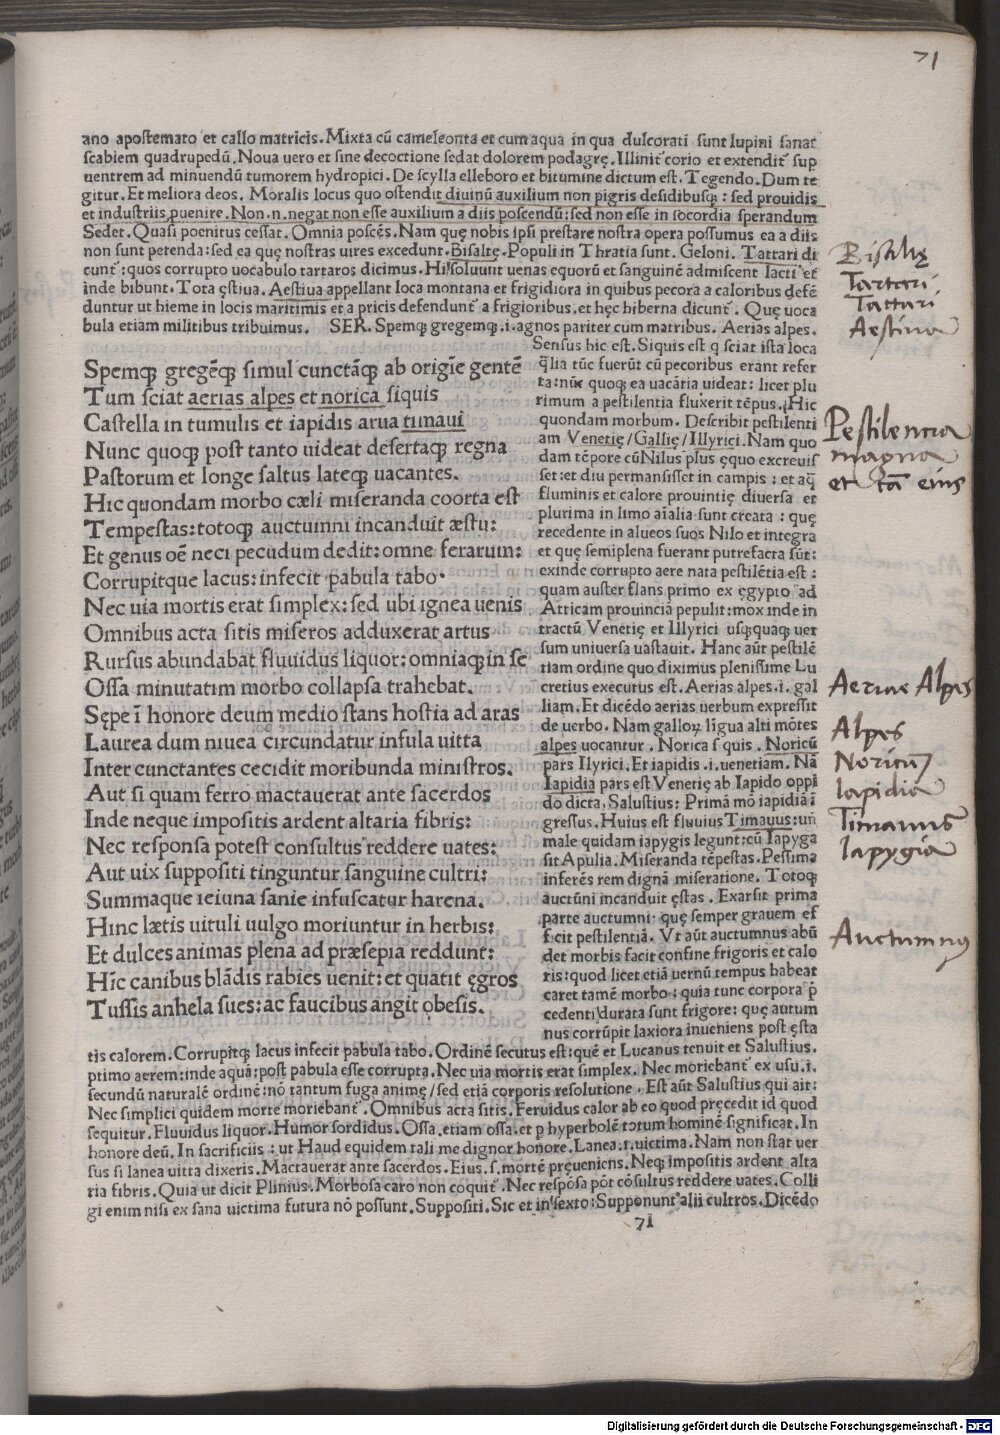 71
ano apostemato et callo matricis. Mixta cū cameleonta et cum aqua in qua dulcorati sunt lupini sanat
scabiem quadrupedū. Noua uero et sine decoctione sedat dolorem podagrę. Illinit corio et extendit sup
uentrem ad minuendū tumorem hydropici. De scylla elleboro et bitumine dictum est. Tegendo. Dum te
gitur. Et meliora deos. Moralis locus quo ostendit diuinū auxilium non pigris desidibusq: sed prouidis
et industriis puenire. Non .n. negat non esse auxilium a diis poscendū: sed non esse in socordia sperandum
Sedet. Quasi poenitus cessat. Omnia poscēs. Nam quę nobis ipsi prestare nostra opera possumus ea a diis
non sunt petenda: sed ea quę nostras uires excedunt. Bisaltę. Populi in Thratia sunt. Geloni. Tattari di
cunt: quos corrupto uocabulo tartaros dicimus. Hi soluunt uenas equorū et sanguinē admiscent lacti et
inde bibunt. Tota ęstiua. Aestiua appellant loca montana et frigidiora in quibus pecora a caloribus defē
duntur ut hieme in locis maritimis et a pricis defendunt a frigioribus. et hęc hiberna dicunt. Quę uoca
bula etiam militibus tribuimus. SER. Spemq gregemq .i. agnos pariter cum matribus. Aerias alpes.
Sensus hic est. Siquis est q sciat ista loca
Spemq gregēq simul cunctāq ab origīe gentē
Tum sciat aerias alpes et norica siquis
Castella in tumulis et iapidis arua timaui
Nunc quoq post tanto uideat desertaq regna
Pastorum et longe saltus lateq uacantes.
Hic quondam morbo cæli miseranda coorta est
Tempestas: totoq auctumni incanduit æstu:
Et genus oē neci pecudum dedit: omne ferarum:
Corrupitque lacus: infecit pabula tabo.
Nec uia mortis erat simplex: sed ubi ignea uenis
Omnibus acta sitis miseros adduxerat artus
Rursus abundabat fluuidus liquor: omniaq in se
Ossa minutatim morbo collapsa trahebat.
Sępe ī honore deum medio stans hostia ad aras
Laurea dum niuea circundatur infula uitta
Inter cunctantes cecidit moribunda ministros.
Aut si quam ferro mactauerat ante sacerdos
Inde neque impositis ardent altaria fibris:
Nec responsa potest consultus reddere uates:
Aut uix suppositi tinguntur sanguine cultri:
Summaque ieiuna sanie infuscatur harena.
Hinc lætis uituli uulgo moriuntur in herbis:
Et dulces animas plena ad præsepia reddunt:
Hīc canibus blādis rabies uenit: et quatit ęgros
Tussis anhela sues: ac faucibus angit obesis.
qlia tūc fuerūt cū pecoribus erant refer
ta: nūc quoq ea uacāria uideat: licet plu
rimum a pestilentia fluxerit tēpus. Hic
quondam morbum. Describit pestilenti
am Venetię/Gallię/Illyrici. Nam quo
dam tēpore cū Nilus plus ęquo excreuis
set: et diu permansisset in campis: et aq
fluminis et calore prouintię diuersa et
plurima in limo aīalia sunt creata: quę
recedente in alueos suos Nilo et integra
et quę semiplena fuerant putrefacta sūt:
exinde corrupto aere nata pestilētia est:
quam auster flans primo ex ęgypto ad
Atticam prouinciā pepulit: mox inde in
tractū Venetię et Illyrici usqquaq uer
sum uniuersa uastauit. Hanc aūt pestilē
tiam ordine quo diximus plenissime Lu
cretius executus est. Aerias alpes .i. gal
liam. Et dicēdo aerias uerbum expressit
de uerbo. Nam galloꝝ līgua alti mōtes
alpes uocantur. Norica s quis. Noricū
pars Ilyrici. Et iapidis .i. uenetiam. Nā
Iapidia pars est Venetię ab Iapido oppi
do dicta. Salustius: Primā mō iapidiā ī
gressus. Huius est fluuius Timauus: uñ
male quidam iapygis legunt: cū Iapyga
sit Apulia. Miseranda tēpestas. Pessima
inferēs rem dignā miseratione. Totoq
auctūni incanduit ęstas. Exarsit prima
parte auctumni. quę semper grauem ef
ficit pestilentiā. Vt aūt auctumnus abū
det morbis facit confine frigoris et calo
ris: quod licet etiā uernū tempus habeat
caret tamē morbo: quia tunc corpora p
cedenti durata sunt frigore: quę autum
nus corrūpit laxiora inueniens post ęsta
tis calorem. Corrupitq lacus infecit pabula tabo. Ordinē secutus est: quē et Lucanus tenuit et Salustius.
ptimo aerem: inde aquā: post pabula esse corrupta. Nec uia mortis erat simplex. Nec moriebant ex usu .i.
secundū naturalē ordinē: nō tantum fuga animę/sed etiā corporis resolutione. Est aūt Salustius qui ait:
Nec simplici quidem morte moriebant. Omnibus acta sitis. Feruidus calor ab eo quod pręcedit id quod
sequitur. Fluuidus liquor. Humor sordidus. Ossa. etiam ossa. et p hyperbolē totum hominē significat. In
honore deū. In sacrificiis: ut Haud equidem tali me dignor honore. Lanea .i. uictima. Nam non stat uer
sus si lanea uitta dixeris. Mactauerat ante sacerdos. Eius .s. mortē pręueniens. Neq impositis ardent alta
ria fibris. Quia ut dicit Plinius. Morbosa caro non coquit. Nec respōsa pōt cōsultus reddere uates. Colli
gi enim nisi ex sana uictima futura nō possunt. Suppositi. Sic et in sexto: Supponunt alii cultros. Dicēdo
71
Bisaltę
Tartari
Tattari
Aestiua
Pestilencia
magna
et cā eius
Aeriae Alpes
Alpes
Noricū
Iapidia
Timauus
Iapygia
Auctumnus
Digitalisierung gefördert durch die Deutsche Forschungsgemeinschaft - DFG